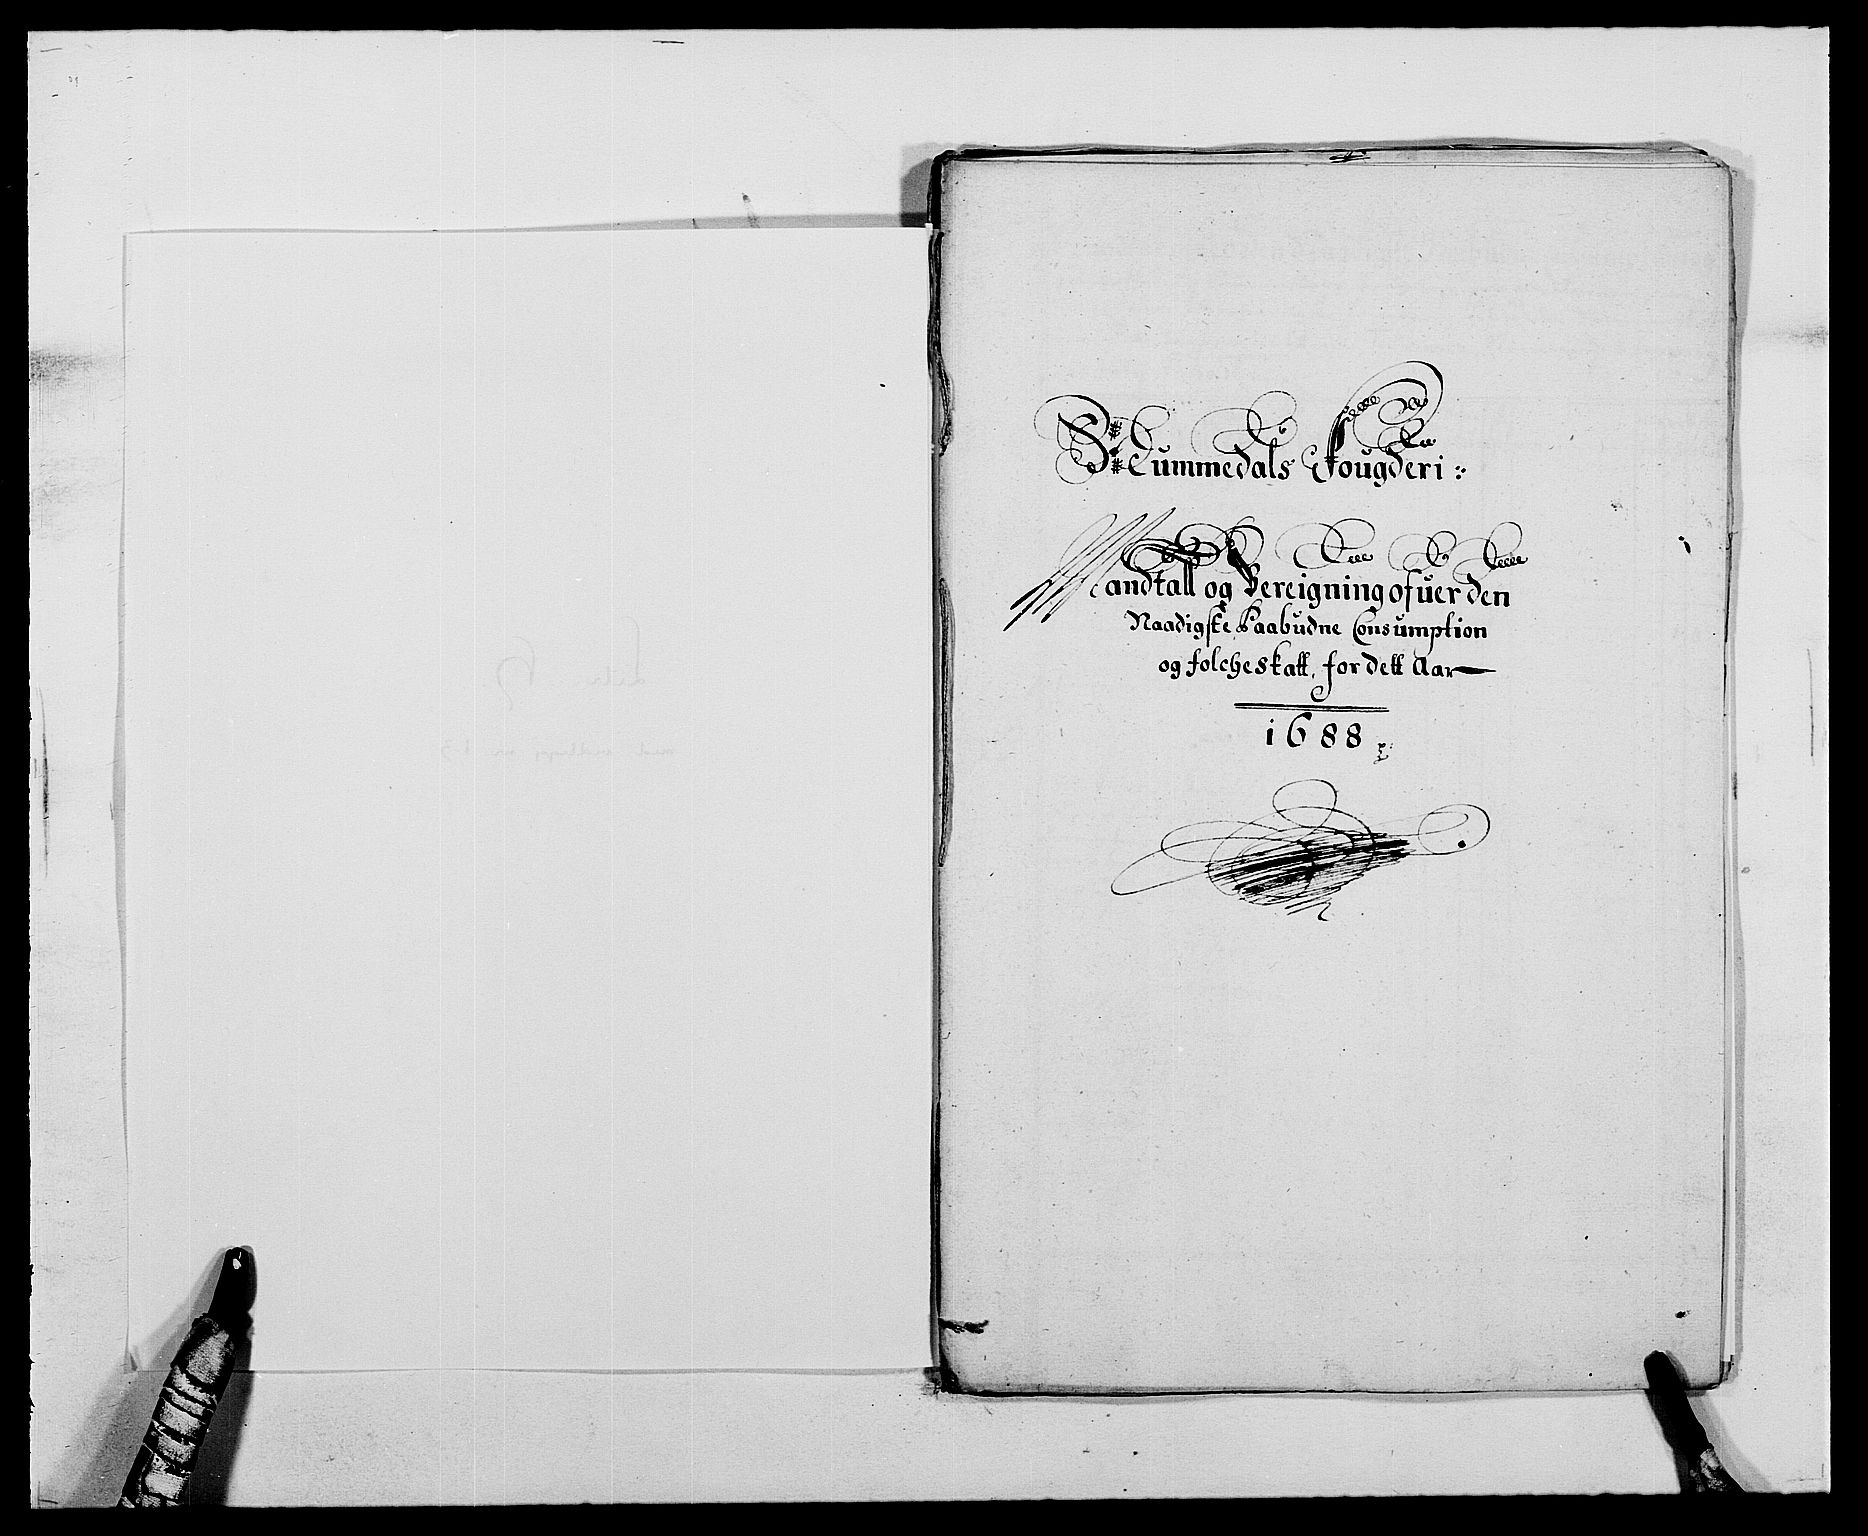 Nummedals Fougderi
Mandtall og Bereigning ofuer den
Naadigste Paabudne Consumption
og folcheskatt, for dett Aar
1688